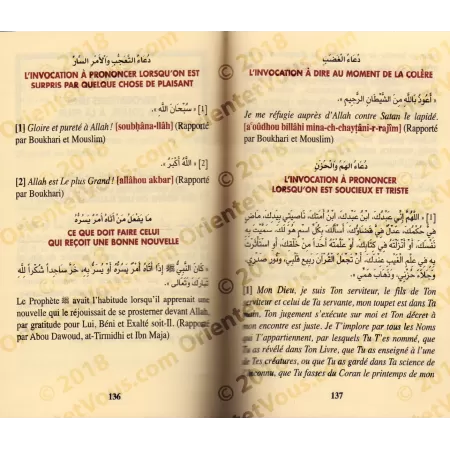 دُعَاءُ التَّعَجُّبِ وَالأَمْرِ السَّارِّ
L'INVOCATION À PRONONCER LORSQU'ON EST
SURPRIS PAR QUELQUE CHOSE DE PLAISANT
[1] « سُبْحَانَ اللَّهِ ».
[1] Gloire et pureté à Allah ! [soubḥâna-llâh] (Rapporté
par Boukhari et Mouslim)
[2] « اللَّهُ أَكْبَرُ ».
[2] Allah est Le plus Grand ! [allâhou akbar] (Rapporté
par Boukhari)
مَا يَفْعَلُ مَنْ أَتَاهُ أَمْرٌ يَسُرُّهُ
CE QUE DOIT FAIRE CELUI
QUI REÇOIT UNE BONNE NOUVELLE
« كَانَ النَّبِيُّ ﷺ إِذَا أَتَاهُ أَمْرٌ يَسُرُّهُ أَوْ يُسَرُّ بِهِ، خَرَّ سَاجِداً شُكْراً لِلَّهِ
تَبَارَكَ وَتَعَالَى ».
Le Prophète ﷺ avait l'habitude lorsqu'il apprenait une
nouvelle qui le réjouissait de se prosterner devant Allah,
par gratitude pour Lui, Béni et Exalté soit-Il. (Rapporté
par Abou Dawoud, at-Tirmidhi et Ibn Maja)
136
دُعَاءُ الغَضَبِ
L'INVOCATION À DIRE AU MOMENT DE LA COLÈRE
« أَعُوذُ بِاللَّهِ مِنَ الشَّيْطَانِ الرَّجِيمِ ».
Je me réfugie auprès d'Allah contre Satan le lapidé.
[a'oûdhou billâhi mina-ch-chayṭâni-r-rajîm] (Rapporté
par Boukhari et Mouslim)
دُعَاءُ الهَمِّ وَالْحُزْنِ
L'INVOCATION À PRONONCER
LORSQU'ON EST SOUCIEUX ET TRISTE
[1] « اللَّهُمَّ إِنِّي عَبْدُكَ، ابْنُ عَبْدِكَ، ابْنُ أَمَتِكَ، نَاصِيَتِي بِيَدِكَ، مَاضٍ
فِيَّ حُكْمُكَ، عَدْلٌ فِيَّ قَضَاؤُكَ، أَسْأَلُكَ بِكُلِّ اسْمٍ هُوَ لَكَ، سَمَّيْتَ بِهِ
نَفْسَكَ، أَوْ أَنْزَلْتَهُ فِي كِتَابِكَ، أَوْ عَلَّمْتَهُ أَحَداً مِنْ خَلْقِكَ، أَوِ اسْتَأْثَرْتَ
بِهِ فِي عِلْمِ الغَيْبِ عِنْدَكَ، أَنْ تَجْعَلَ القُرْآنَ رَبِيعَ قَلْبِي، وَنُورَ صَدْرِي،
وَجَلَاءَ حُزْنِي، وَذَهَابَ هَمِّي ».
[1] Mon Dieu, je suis Ton serviteur, le fils de Ton
serviteur et celui de Ta servante, mon toupet est dans Ta
main. Ton jugement s'exécute sur moi et Ton décret à
mon encontre est juste. Je T'implore par tous les Noms
qui T'appartiennent, par lesquels Tu T'es nommé, que
Tu as révélé dans Ton Livre, que Tu as enseigné à l'une
de Tes créatures, ou que Tu as gardé dans Ta science de
l'inconnu, que Tu fasses du Coran le printemps de mon
137